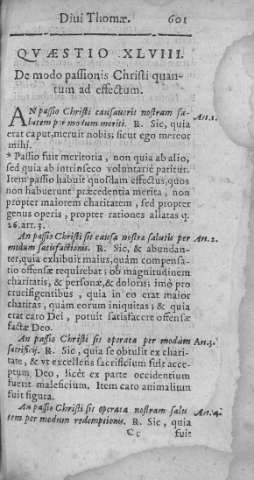 Divi Thomæ. 601
QVÆSTIO XLVIII.
De modo passionis Christi quan-
tum ad effectum.
AN passio Christi causaverit nostram sa- Art.1.
lutem per modum meriti. R. Sic, quia
erat caput, meruit nobis; sicut ego mereor
mihi.
* Passio fuit meritoria, non quia ab alio,
sed quia ab intrinseco voluntariè patitur.
Item passio habuit quosdam effectus, quos
non habuerunt præcedentia merita, non
propter maiorem charitatem, sed propter
genus operis, propter rationes allatas q.
26. art. 3.
An passio Christi sit causa nostra salutis per Art.2.
modum satisfactionis. R. Sic, & abundan-
ter, quia exhibuit maius, quàm compensa-
tio offensæ requirebat; ob magnitudinem
charitatis, & personæ, & doloris: imò pro
crucifigentibus, quia in eo erat maior
charitas, quàm eorum iniquitas: & quia
erat caro Dei, potuit satisfacere offensæ
factæ Deo.
An passio Christi sit operata per modum Art.3.
sacrificij. R. Sic, quia se obtulit ex chari-
tate, & vt excellens sacrificium fuit acce-
ptum Deo, licèt ex parte occidentium
fuerit maleficium. Item caro animalium
fuit figura.
An passio Christi sit operata nostram salu Art.4.
tem per modum redemptionis. R. Sic, quia
Cc fuit